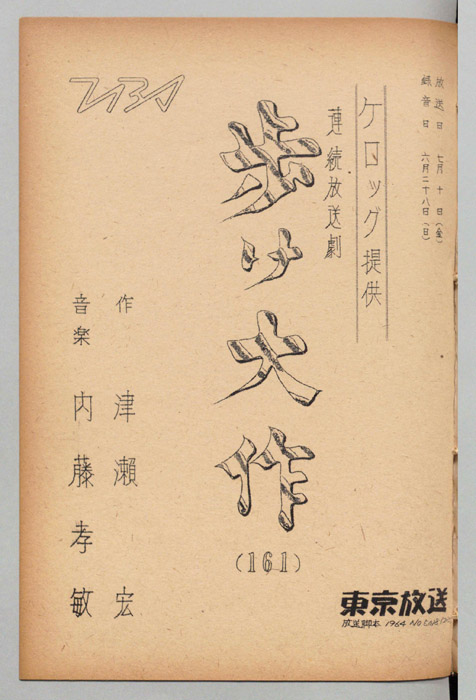 放送日 七月十日(金)
録音日 六月二十八日(日)
ケロッグ提供
連続放送劇
歩け大作
(161)
作 津瀬宏
音楽 内藤孝敏
TBS
東京放送
放送脚本 1964 No